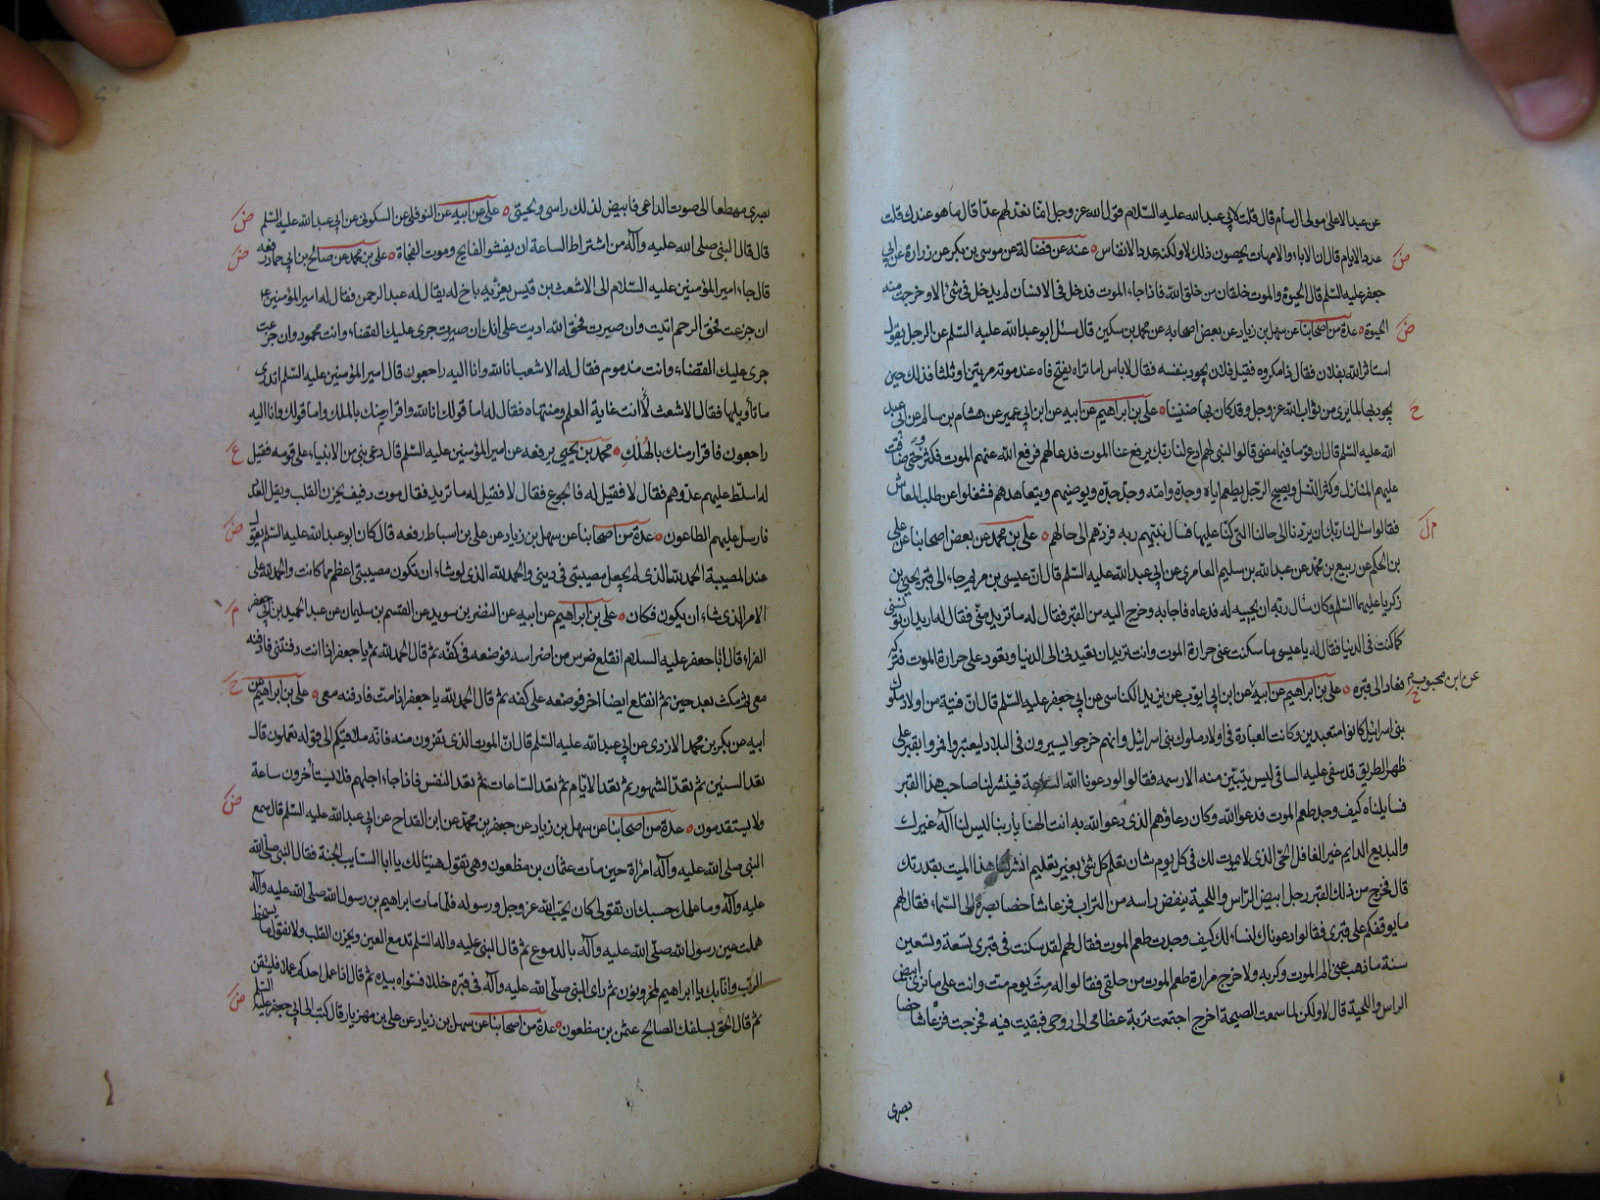 عن عبد الاعلى مولى ال سام قال قلت لابي عبد الله عليه السلام قول الله عز وجل انما نعد لهم عدا قال ما هو عندك قلت
عدد الايام قال ان الاباء والامهات يحصون ذلك لا ولكنه عدد الانفاس ٥ عنه عن فضالة عن موسى بن بكر عن زرارة عن ابي
ض
جعفر عليه السلم قال الحيوة والموت خلقان من خلق الله فاذا جاء الموت فدخل في الانسان لم يدخل في شئ الا وخرجت منه
الحيوة ٥ عدة من اصحابنا عن سهل بن زياد عن بعض اصحابه عن محمد بن سكين قال سئل ابو عبد الله عليه السلم عن الرجل يقول
ض
استاثر الله بفلان فقال ذا مكروه فقيل فلان يجود بنفسه فقال لا باس اما تراه يفتح فاه عند موته مرتين او ثلثا فذلك حين
يجود بها لما يرى من ثواب الله عز وجل وقد كان بها ضنينا ٥ علي بن ابراهيم عن ابيه عن ابن ابي عمير عن هشام بن سالم عن ابي عبد
ح
الله عليه السلم قال ان قوما فيما مضى قالوا لنبي لهم ادع لنا ربك يرفع عنا الموت فدعا لهم فرفع الله عنهم الموت فكثروا حتى ضاقت
عليهم المنازل وكثر النسل ويصبح الرجل يطعم اباه وجده وامه وجد جده ويوضيهم ويتعاهدهم فشغلوا عن طلب المعاش
فقالوا سئل لنا ربك ان يردنا الى حالنا التي كنا عليها فسال نبيهم ربه فردهم الى حالهم ٥ علي بن محمد عن بعض اصحابنا عن علي
بن الحكم عن ربيع بن محمد عن عبد الله بن سليم العامري عن ابي عبد الله عليه السلم قال ان عيسى بن مريم جاء الى قبر يحيى بن
زكريا عليهما السلم وكان سال ربه ان يحييه له فدعاه فاجابه وخرج اليه من القبر فقال له ما تريد مني فقال له اريد ان تونسني
كما كنت في الدنيا فقال له يا عيسى ما سكنت عني حرارة الموت وانت تريد ان تعيدني الى الدنيا وتعود على حرارة الموت فتركه
فعاد الى قبره ٥ علي بن ابراهيم عن ابيه عن ابن ابي ايوب عن يزيد الكناسي عن ابي جعفر عليه السلم قال ان فتية من اولاد ملوك
عن ابن محبوب
ح
بني اسرائيل كانوا متعبدين وكانت العبادة في اولاد ملوك بني اسرائيل وانهم خرجوا يسيرون في البلاد ليعتبروا فمروا بقبر على
ظهر الطريق قد سفى عليه السافي ليس يتبين منه الا رسمه فقالوا لو دعونا الله الساعة فينشر لنا صاحب هذا القبر
فسايلناه كيف وجد طعم الموت فدعوا الله وكان دعاؤهم الذي دعوا الله به انت الهنا يا ربنا ليس لنا اله غيرك
والبديع الدايم غير الغافل الحي الذي لا يموت لك في كل يوم شان تعلم كل شئ بغير تعليم انشر لنا هذا الميت بقدرتك
قال فخرج من ذلك القبر رجل ابيض الراس واللحية ينفض راسه من التراب فزعا شاخصا بصره الى السماء فقال لهم
ما يوقفكم على قبري فقالوا دعوناك لنسالك كيف وجدت طعم الموت فقال لهم لقد سكنت في قبري تسعة وتسعين
سنة ما ذهب عني الم الموت وكربه ولا خرج مرارة طعم الموت من حلقي فقالوا له مت يوم مت وانت على ما نرى ابيض
الراس واللحية قال لا ولكن لما سمعت الصيحة اخرج اجتمعت تربة عظامي الى روحي فبقيت فيه فخرجت فزعا شاخصا
بصري
بصري مهطعا الى صوت الداعي فابيض لذلك راسي ولحيتي ٥ علي عن ابيه عن النوفلي عن السكوني عن ابي عبد الله عليه السلم
ض
قال قال النبي صلى الله عليه وآله من اشتراط الساعة ان يفشو الفالج وموت الفجاة ٥ علي بن محمد عن صالح بن ابي حماد رفعه
ض
قال جاء امير المؤمنين عليه السلام الى الاشعث بن قيس يعزيه باخ له يقال له عبد الرحمن فقال له امير المؤمنين ع
ان جزعت فحق الرحم اتيت وان صبرت فحق الله اديت على انك ان صبرت جرى عليك القضاء وانت محمود وان جزعت
جرى عليك القضاء وانت مذموم فقال له الاشعث انا لله وانا اليه راجعون قال امير المؤمنين عليه السلم اتدري
ما تأويلها فقال الاشعث لا انت غاية العلم ومنتهاه فقال له اما قولك انا لله واقرار منك بالملك واما قولك وانا اليه
راجعون فاقرار منك بالهلك ٥ محمد بن يحيى يرفعه عن امير المؤمنين عليه السلم قال دعى نبي من الانبياء على قومه فقيل
ع
له اسلط عليهم عدوهم فقال لا فقيل له فالجوع فقال لا فقيل له ما تريد فقال موت دفيف يحزن القلب ويقل العدد
فارسل عليهم الطاعون ٥ عدة من اصحابنا عن سهل بن زياد عن علي بن اسباط رفعه قال كان ابو عبد الله عليه السلم يقول
ض
عند المصيبة الحمد لله الذي لم يجعل مصيبتي في ديني والحمد لله الذي لو شاء ان تكون مصيبتي اعظم مما كانت والحمد لله على
الامر الذي شاء ان يكون فكان ٥ علي بن ابراهيم عن ابيه عن النضر بن سويد عن القسم بن سليمان عن عبد الحميد بن ابي جعفر
م
الفراء قال ان ابا جعفر عليه السلام انقلع ضرس من اضراسه فوضعه في كفه ثم قال الحمد لله ثم يا جعفر اذا انت دفنتني فادفنه
معي ثم مكث بعد حين ثم انقلع ايضا اخر فوضعه على كفه ثم قال الحمد لله يا جعفر اذا مت فادفنه معي ٥ علي بن ابراهيم عن
ح
ابيه عن بكر بن محمد الازدي عن ابي عبد الله عليه السلم قال ان الموت الذي تفرون منه فانه ملاقيكم الى قوله تعملون قال
تعد السنين ثم تعد الشهور ثم تعد الايام ثم تعد الساعات ثم تعد النفس فاذا جاء اجلهم فلا يستأخرون ساعة
ولا يستقدمون ٥ عدة من اصحابنا عن سهل بن زياد عن جعفر بن محمد عن ابن القداح عن ابي عبد الله عليه السلم قال سمع
ض
النبي صلى الله عليه وآله امراة حين مات عثمان بن مظعون وهي تقول هنيئا لك يا ابا السايب الجنة فقال النبي صلى الله
عليه وآله وما علمك حسبك ان تقولي كان يحب الله عز وجل ورسوله فلما مات ابراهيم بن رسول الله صلى الله عليه وآله
هملت عين رسول الله صلى الله عليه وآله بالدموع ثم قال النبي عليه وآله السلم تدمع العين ويحزن القلب ولا نقول ما يسخط
الرب وانا بك يا ابراهيم لمحزونون ثم راى النبي صلى الله عليه وآله في قبره خللا فسواه بيده ثم قال اذا عمل احدكم عملا فليتقن
ثم قال الحق بسلفك الصالح عثمن بن مظعون ٥ عدة من اصحابنا عن سهل بن زياد عن علي بن مهزيار قال كتب الى ابي جعفر عليه السلم
ض